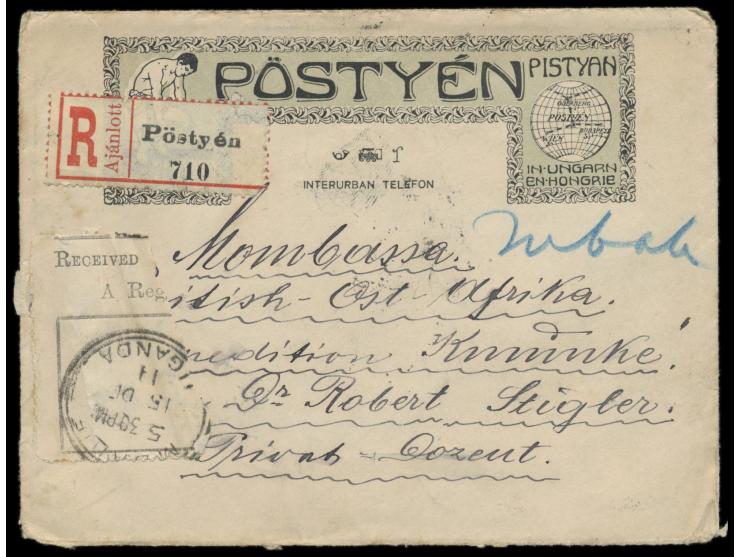 PÖSTYÉN
PISTYAN
ODERBERG
PÖSTYÉN
WIEN
BUDAPEST
IN·UNGARN
EN·HONGRIE
R
Ajánlott
Pöstyén
710
INTERURBAN TELEFON
Mombassa.
itish - Ost Afrika.
pedition
Dr Robert Stigler.
Privat - Dozent.
RECEIVED
A Reg
GANDA
11
15 DE
5 30 PM